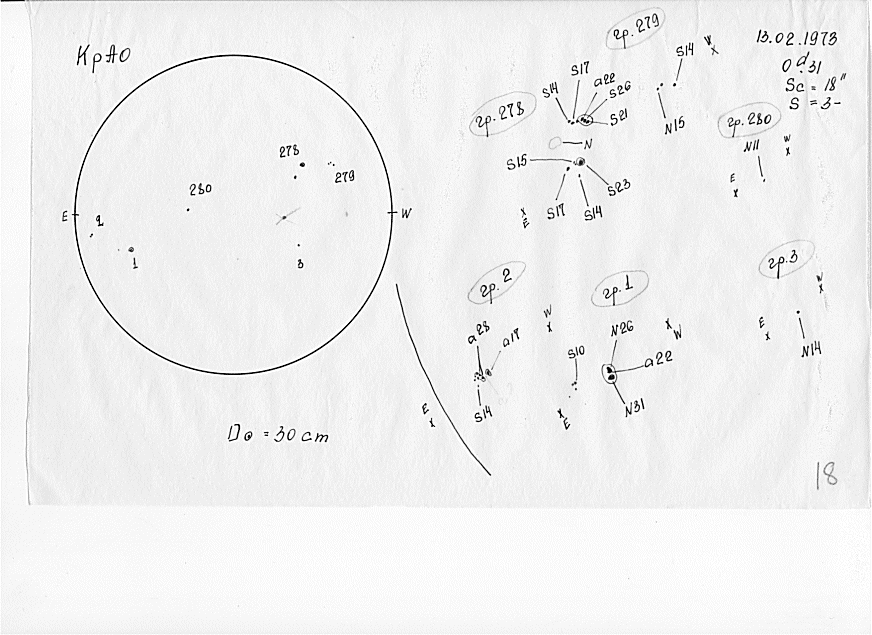 КрАО
13.02.1973
0ᵈ.31
Sc = 18"
S = 3-
E
W
278
279
280
2
1
3
D⊙ = 30 cm
гр. 279
S14
W
x
N15
гр. 278
S14
S17
a22
S26
S21
N
S15
S23
S17
S14
x
E
гр. 280
N11
W
x
E
x
гр. 2
a28
a17
S14
W
x
E
x
гр. 1
N26
a22
N31
S10
x
W
x
E
гр. 3
W
x
E
x
N14
18